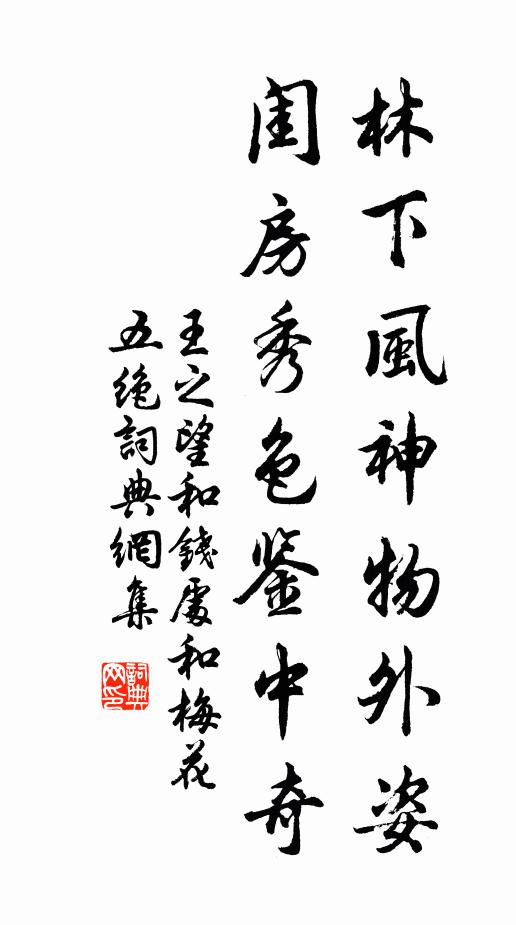 林下風神物外姿
閨房秀色鉴中奇
王之望和錢處和梅花
五绝詞典網集
詞典网印